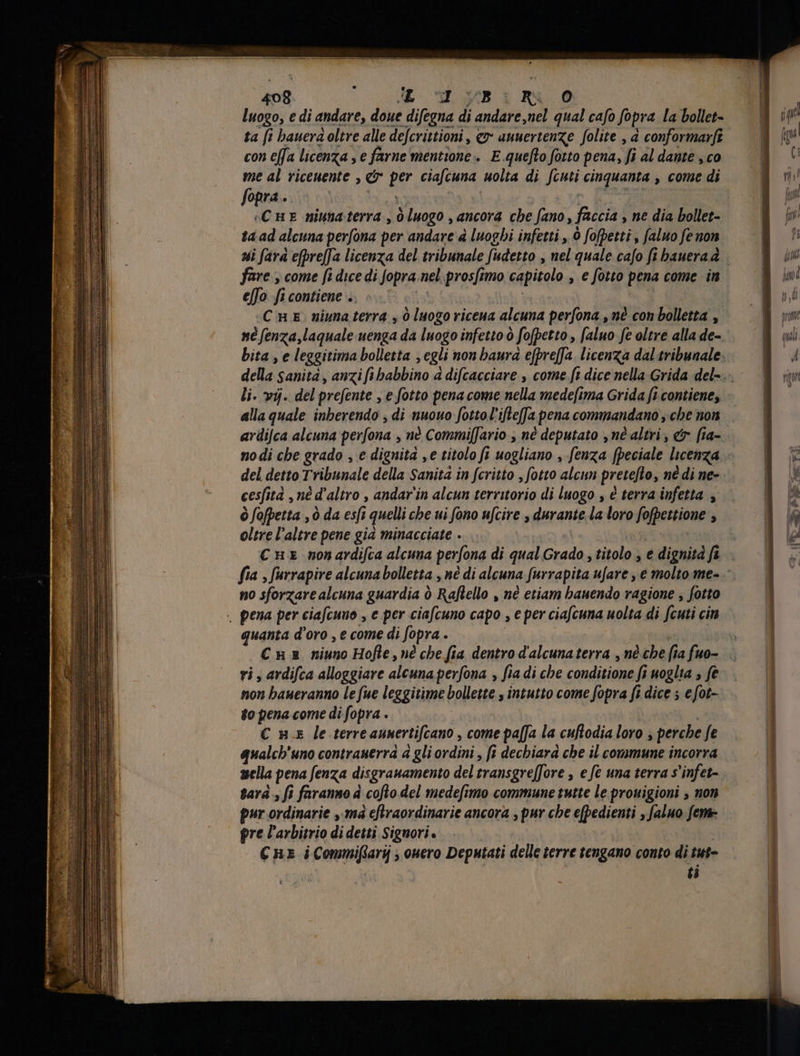 408 L I B R O
luogo, e di andare, doue diſegna di andare,nel qual caſo ſopra la bollet-
ta ſi hauerà oltre alle deſcrittioni, & auuertenze ſolite , à conformarſi
con eſſa licenza , e farne mentione . E queſto ſotto pena, ſi al dante , co
me al riceuente , & per ciaſcuna uolta di ſcuti cinquanta , come di
ſopra .
CHE niuna terra , ò luogo , ancora che ſano, faccia , ne dia bollet-
ta ad alcuna perſona per andare à luoghi infetti , ò ſoſpetti , ſaluo ſe non
ui ſarà eſpreſſa licenza del tribunale ſudetto , nel quale caſo ſi hauerà à
fare , come ſi dice di ſopra nel proſſimo capitolo , e ſotto pena come in
eſſo ſi contiene .
CHE niuna terra , ò luogo riceua alcuna perſona , nè con bolletta ,
nè ſenza,laquale uenga da luogo infetto ò ſoſpetto , ſaluo ſe oltre alla de-
bita , e leggitima bolletta , egli non haurà eſpreſſa licenza dal tribunale
della Sanità, anzi ſi habbino à diſcacciare , come ſi dice nella Grida del-
li. vij. del preſente , e ſotto pena come nella medeſima Grida ſi contiene,
alla quale inherendo , di nuouo ſotto l'iſteſſa pena commandano , che non
ardiſca alcuna perſona , nè Commiſſario , nè deputato , nè altri , & ſia-
no di che grado , e dignità , e titolo ſi uogliano , ſenza ſpeciale licenza
del detto Tribunale della Sanità in ſcritto , ſotto alcun preteſto, nè di ne-
cesſità , nè d'altro , andar'in alcun territorio di luogo , è terra infetta ,
ò ſoſpetta , ò da esſi quelli che ui ſono uſcire , durante la loro ſoſpettione ,
oltre l'altre pene già minacciate .
CHE non ardiſca alcuna perſona di qual Grado , titolo , e dignità ſi
ſia , ſurrapire alcuna bolletta , nè di alcuna ſurrapita uſare , e molto me-
no sforzare alcuna guardia ò Raſtello , nè etiam hauendo ragione , ſotto
pena per ciaſcuno , e per ciaſcuno capo , e per ciaſcuna uolta di ſcuti cin
quanta d'oro , e come di ſopra .
CHE niuno Hoſte, nè che ſia dentro d'alcuna terra , nè che ſia fuo-
ri , ardiſca alloggiare alcuna perſona , ſia di che conditione ſi uoglia , ſe
non haueranno le ſue leggitime bollette , in tutto come ſopra ſi dice ; e ſot-
to pena come di ſopra .
CHE le terre auuertiſcano , come paſſa la cuſtodia loro , perche ſe
qualch'uno contrauerrà à gli ordini , ſi dechiara che il commune incorra
nella pena ſenza disgrauamento del transgreſſore , e ſe una terra s'infet-
tarà , ſi faranno à coſto del medeſimo commune tutte le prouigioni , non
pur ordinarie , mà eſtraordinarie ancora , pur che eſpedienti , ſaluo ſem-
pre l'arbitrio di detti Signori.
CHE i Commiſſarij , ouero Deputati delle terre tengano conto di tut-
ti